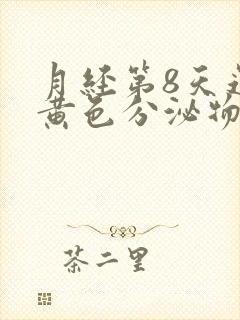 月经第8天
黄色分泌物
茶二里